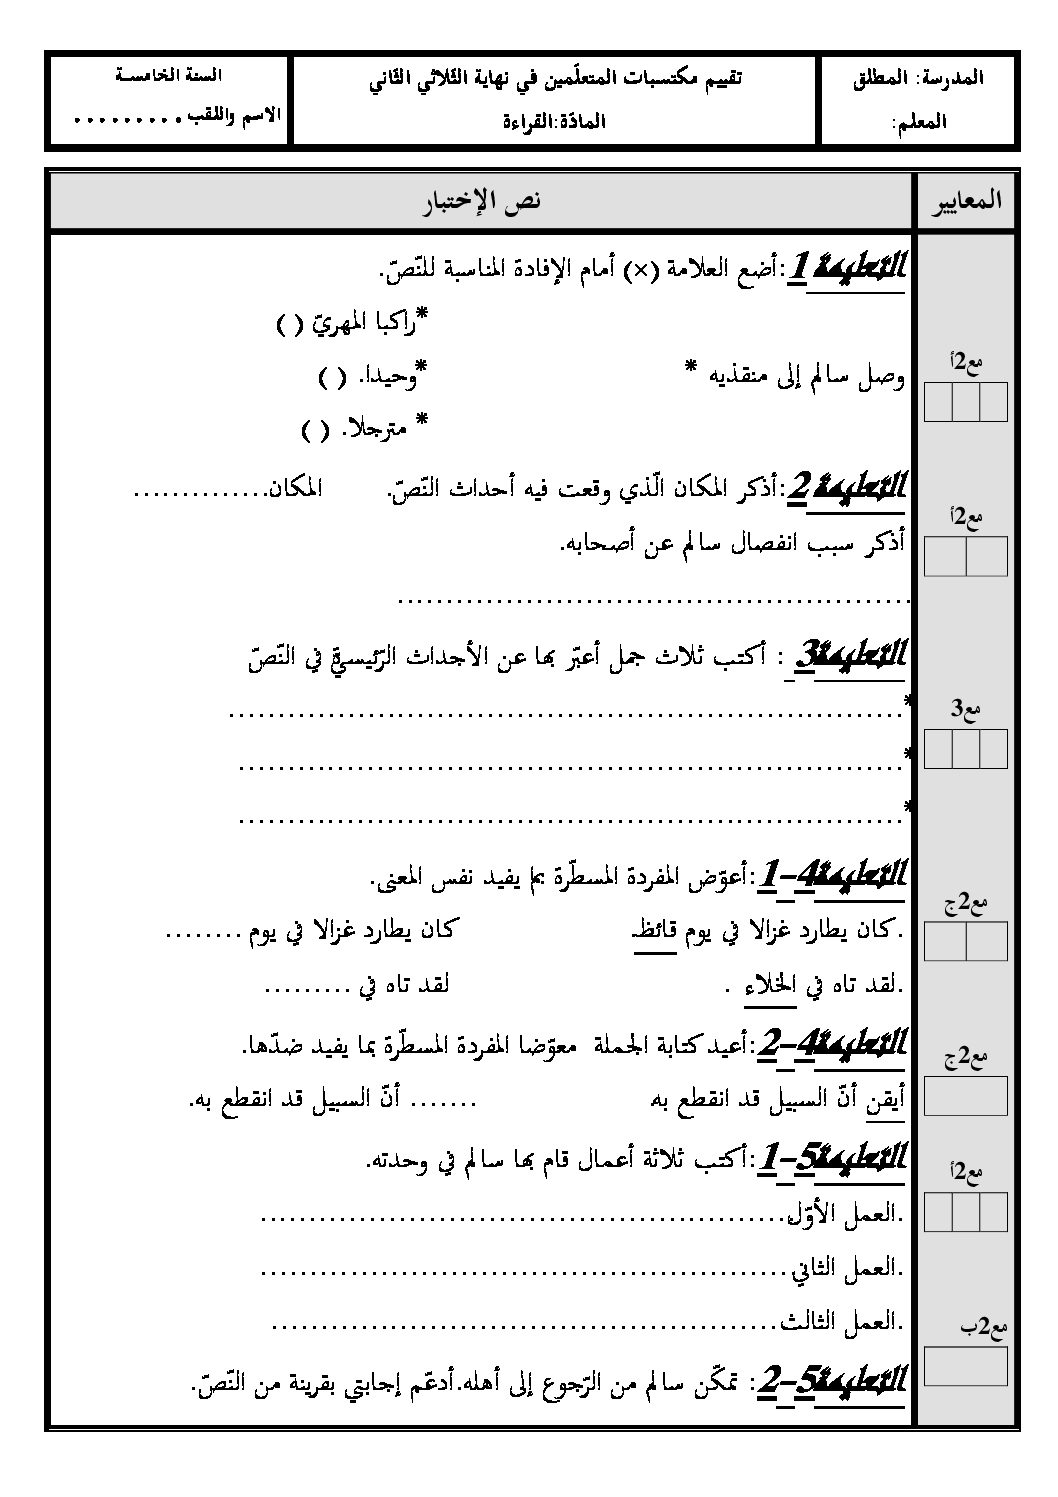 المدرسة: المطلق
المعلم:
تقييم مكتسبات المتعلّمين في نهاية الثلاثي الثاني
المادّة:القراءة
السنة الخامسـة
الاسم واللقب.........
المعايير
نص الإختبار
التعليمة 1:أضع العلامة (×) أمام الإفادة المناسبة للنّصّ.
*راكبا المهريّ ( )
مع2أ
وصل سالم إلى منقذيه *
*وحيدا. ( )
* مترجلا. ( )
التعليمة 2:أذكر المكان الّذي وقعت فيه أحداث النّصّ. المكان..............
مع2أ
أذكر سبب انفصال سالم عن أصحابه.
.....................................................
التعليمة3 : أكتب ثلاث جمل أعبّر بها عن الأجداث الرّئيسيّة في النّصّ
مع3
*....................................................................
*...................................................................
*...................................................................
التعليمة4–1:أعوّض المفردة المسطّرة بما يفيد نفس المعنى.
مع2ج
.كان يطارد غزالا في يوم قائظ. كان يطارد غزالا في يوم ........
.لقد تاه في الخلاء . لقد تاه في .........
التعليمة4–2:أعيد كتابة الجملة معوّضا المفردة المسطّرة بما يفيد ضدّها.
مع2ج
أيقن أنّ السبيل قد انقطع به. ....... أنّ السبيل قد انقطع به.
التعليمة5–1:أكتب ثلاثة أعمال قام بها سالم في وحدته.
مع2أ
.العمل الأوّل.....................................................
.العمل الثاني.....................................................
.العمل الثالث....................................................
مع2ب
التعليمة5–2: تمكّن سالم من الرّجوع إلى أهله.أدعّم إجابتي بقرينة من النّصّ.